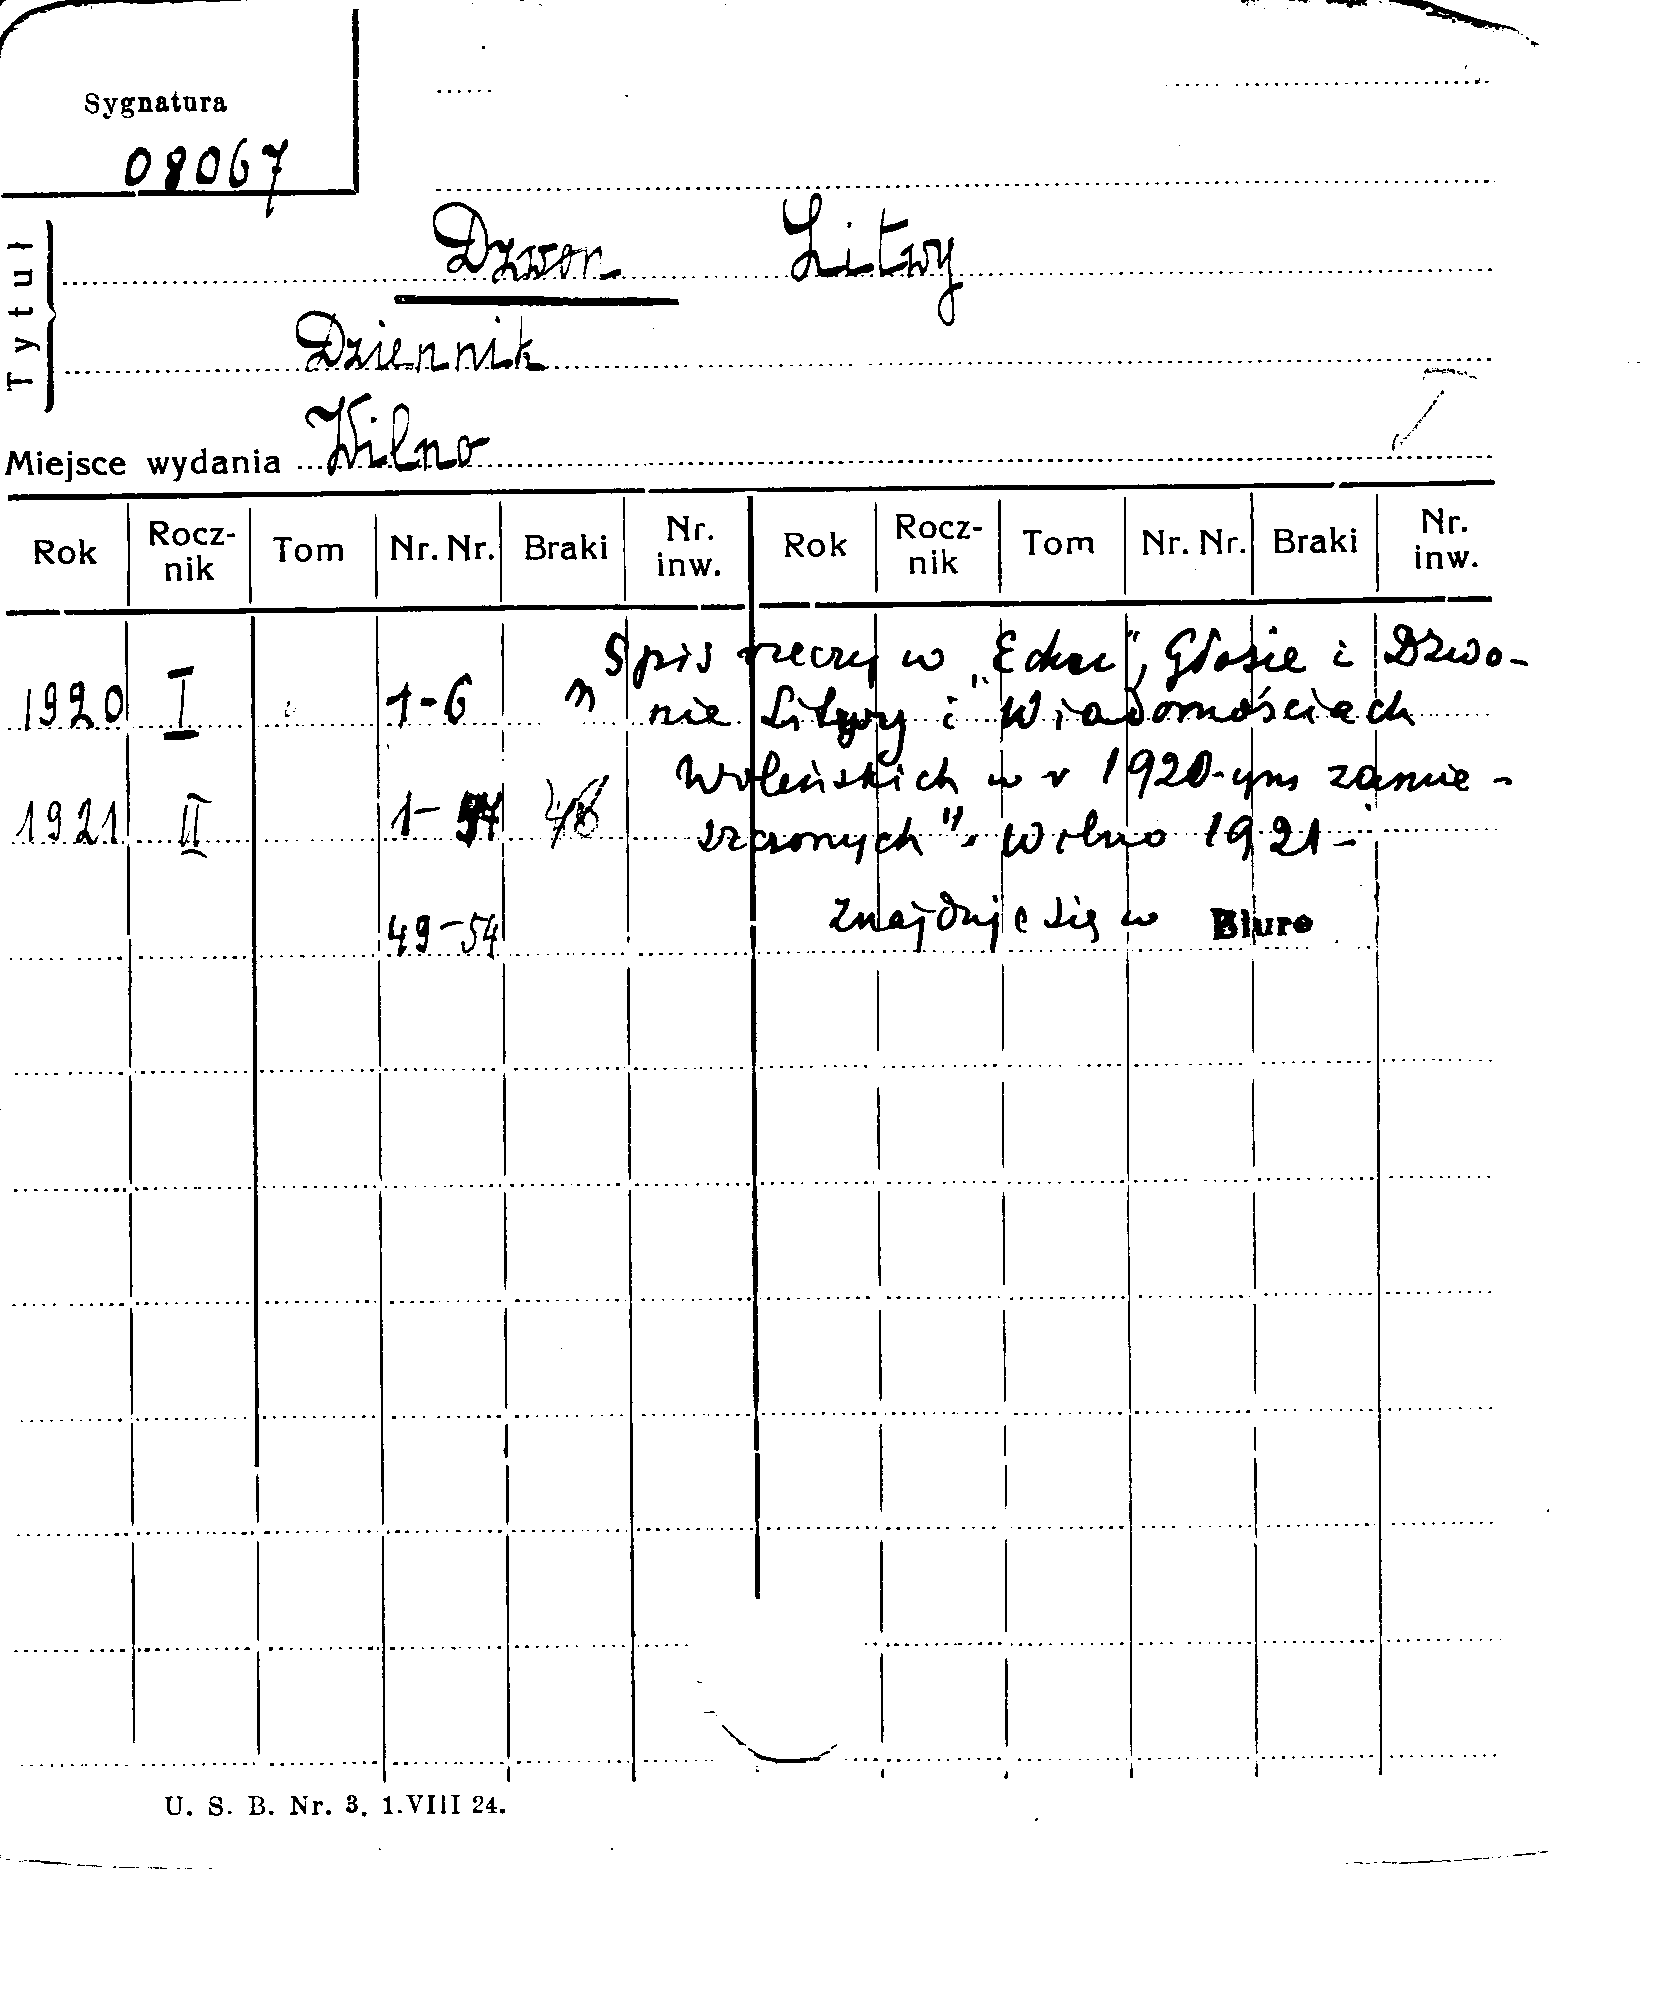 Sygnatura
08067
Tytuł
Dzwon Litwy
Dziennik
Miejsce wydania Wilno
Rok Rocz-nik Tom Nr. Nr. Braki Nr. inw. Rok Rocz-nik Tom Nr. Nr. Braki Nr. inw.
"Spis rzeczy w "Echu", Głosie i Dzwo-
1920 I 1-6 nie Litwy i "Wiadomościach
Wileńskich w r 1920-ym zamie-
1921 II 1- 48
szczonych". Wilno 1921-
49-54 znajduje się w Biurze
U. S. B. Nr. 3. 1.VIII 24.